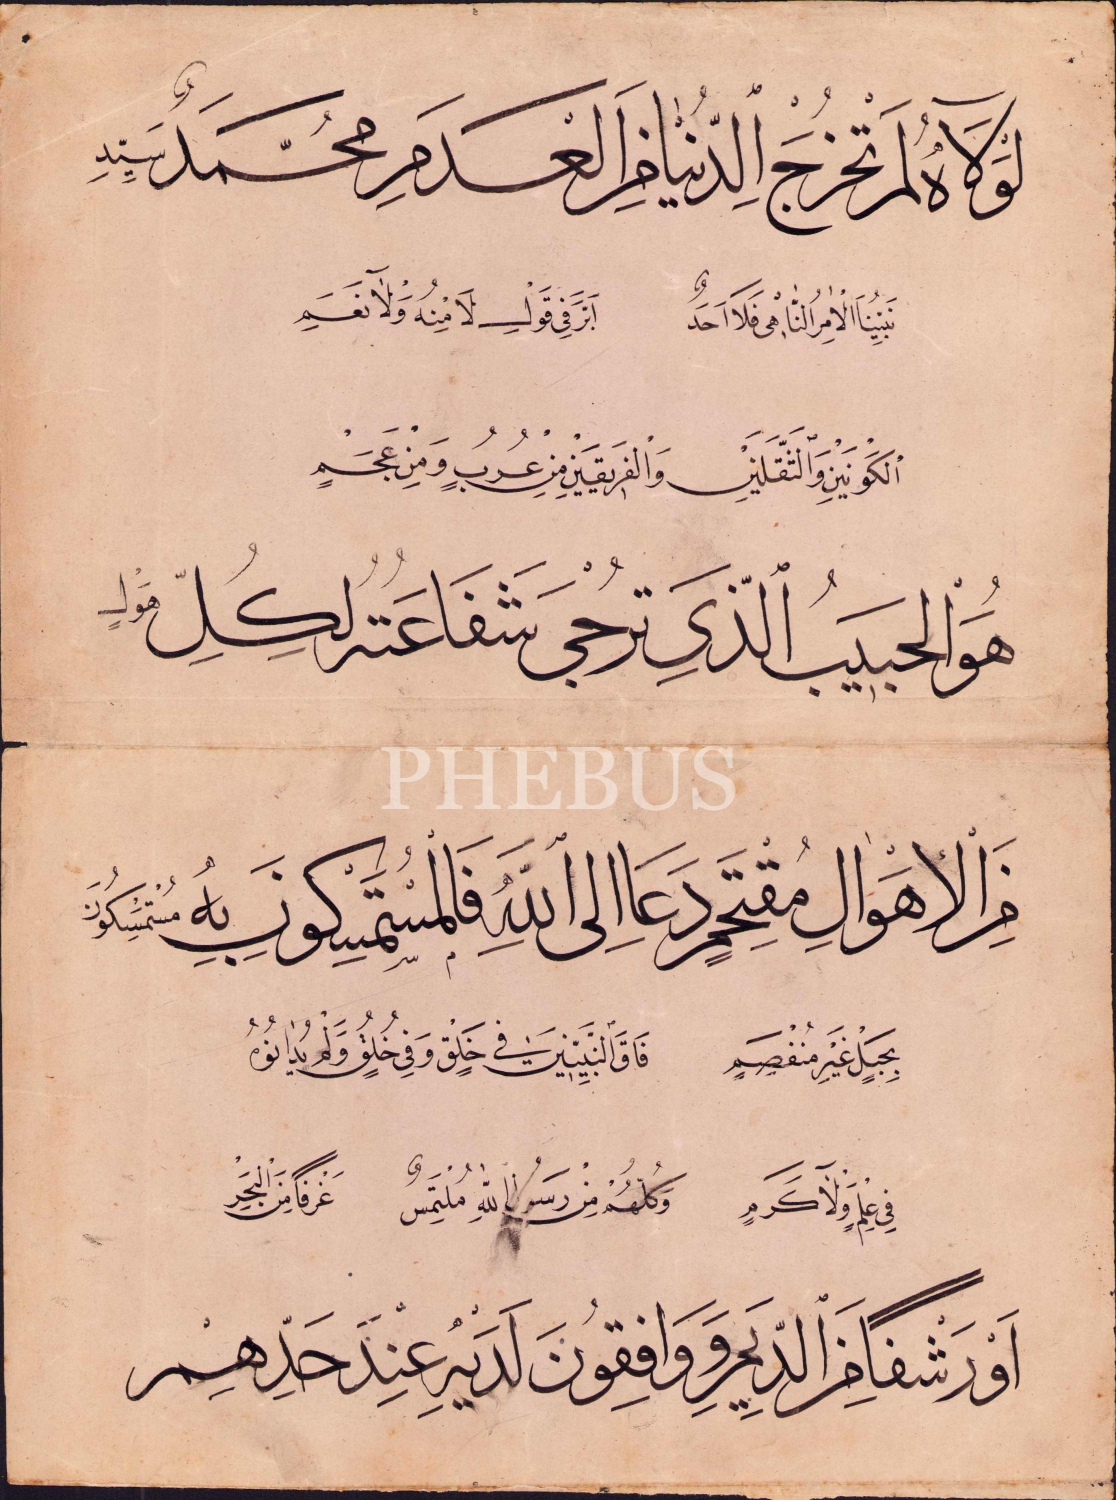 لَوْلَاهُ لَمْ تُخْرَجِ الدُّنْيَا مِنَ الْعَدَمِ مُحَمَّدٌ سَيِّدُ
نَبِيُّنَا الْآمِرُ النَّاهِي فَلَا اَحَدٌ اَبَرَّ فِي قَوْلِ لَا مِنْهُ وَلَا نَعَمِ
الْكَوْنَيْنِ وَالثَّقَلَيْنِ وَالْفَرِيقَيْنِ مِنْ عُرْبٍ وَمِنْ عَجَمٍ
هُوَ الْحَبِيبُ الَّذِي تُرْجَى شَفَاعَتُهُ لِكُلِّ هَوْلٍ
مِنَ الْاَهْوَالِ مُقْتَحِمٍ دَعَا اِلَى اللّٰهِ فَالْمُسْتَمْسِكُونَ بِهِ مُسْتَمْسِكُونَ
بِحَبْلٍ غَيْرِ مُنْفَصِمٍ فَاقَ النَّبِيِّينَ فِي خَلْقٍ وَفِي خُلُقٍ وَلَمْ يُدَانُوهُ
فِي عِلْمٍ وَلَا كَرَمٍ وَكُلُّهُمْ مِنْ رَسُولِ اللّٰهِ مُلْتَمِسٌ غَرْفًا مِنَ الْبَحْرِ
اَوْ رَشْفًا مِنَ الدِّيَمِ وَوَاقِفُونَ لَدَيْهِ عِنْدَ حَدِّهِمْ
PHEBUS